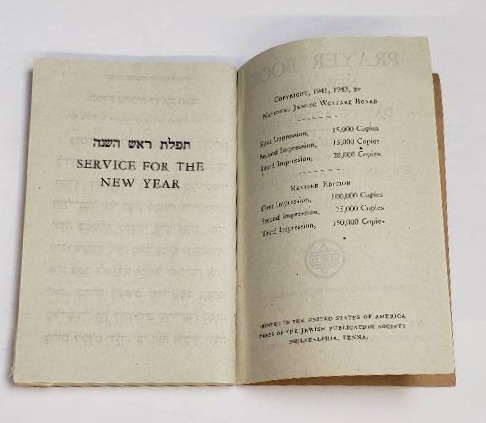 תפלת ראש השנה
SERVICE FOR THE
NEW YEAR
COPYRIGHT, 1941, 1943, BY
NATIONAL JEWISH WELFARE BOARD
First Impression, 15,000 Copies
Second Impression, 15,000 Copies
Third Impression, 20,000 Copies
REVISED EDITION
First Impression, 100,000 Copies
Second Impression, 75,000 Copies
Third Impression, 150,000 Copies
PRINTED IN THE UNITED STATES OF AMERICA
PRESS OF THE JEWISH PUBLICATION SOCIETY
PHILADELPHIA, PENNA.